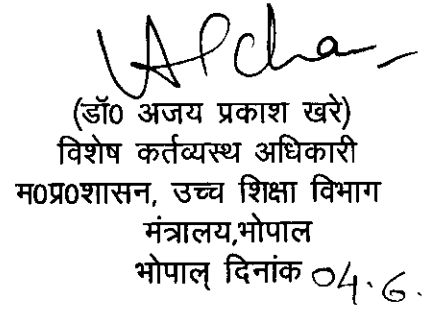 (डॉ0 अजय प्रकाश खरे)
विशेष कर्तव्यस्थ अधिकारी
म0प्र0शासन, उच्च शिक्षा विभाग
मंत्रालय,भोपाल
भोपाल् दिनांक 04.6.